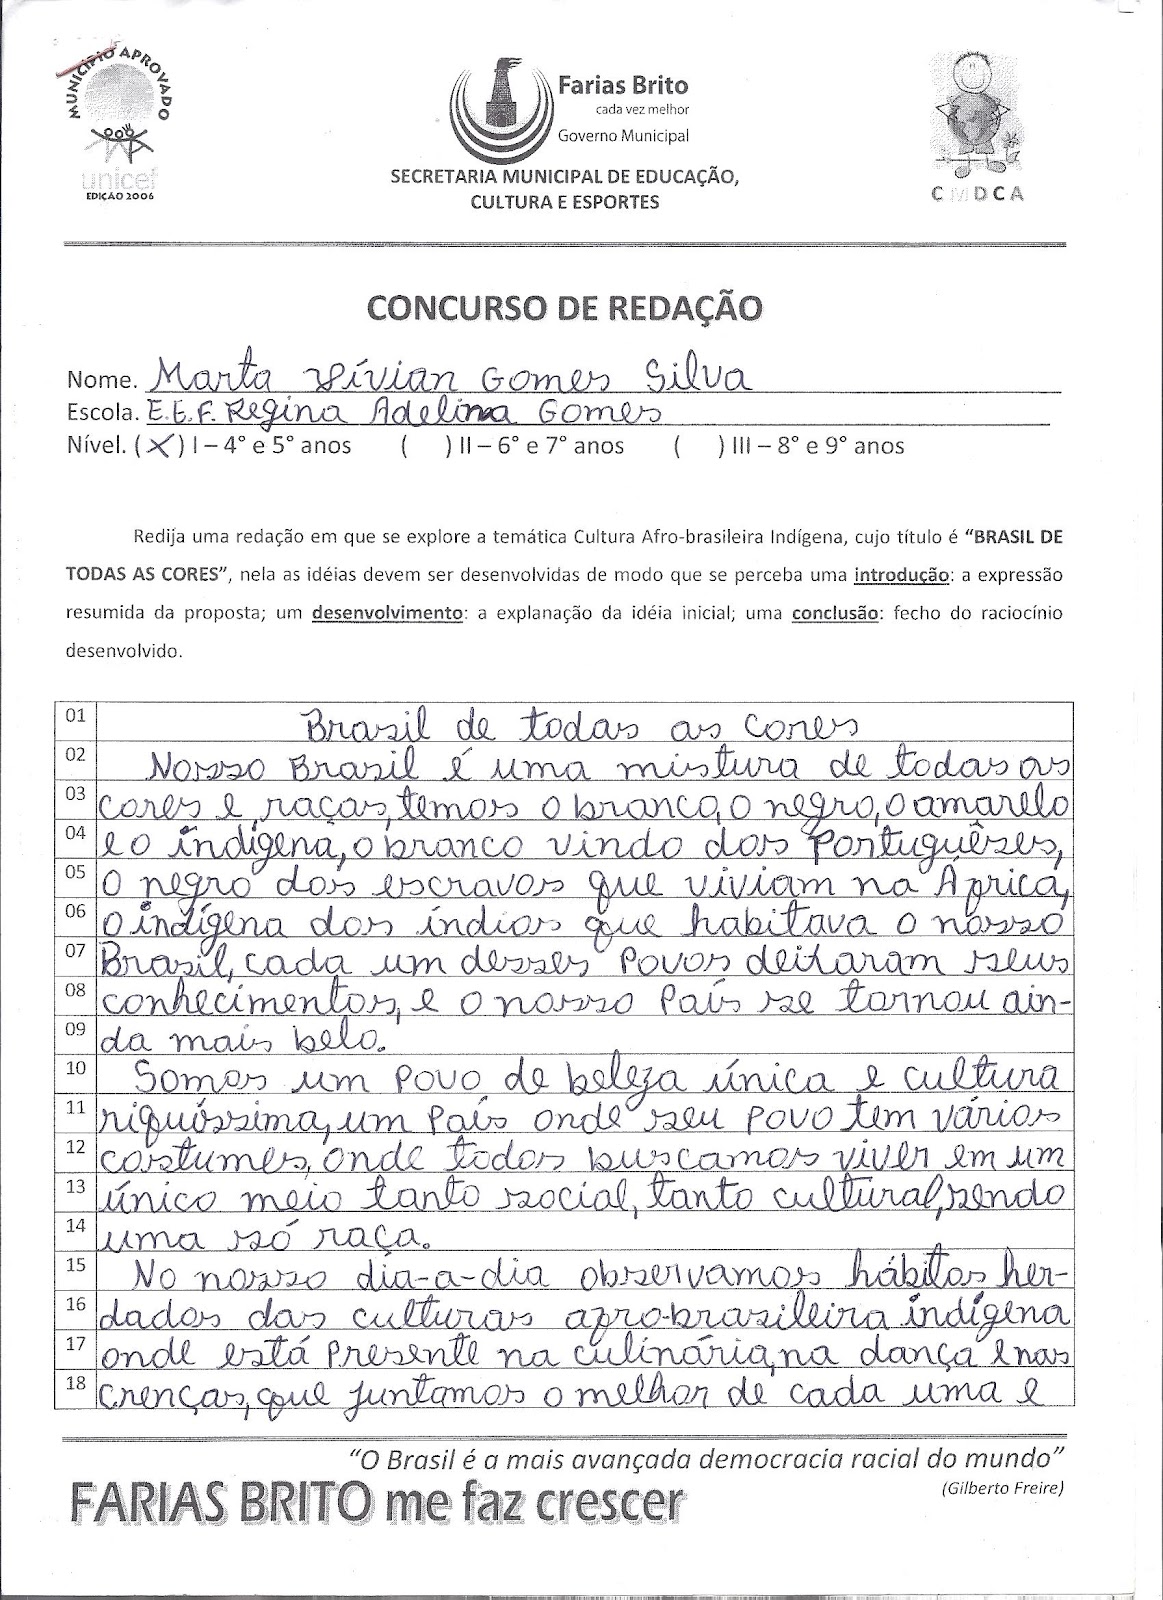 MUNICÍPIO APROVADO
unicef
EDIÇÃO 2006
Farias Brito
cada vez melhor
Governo Municipal
SECRETARIA MUNICIPAL DE EDUCAÇÃO,
CULTURA E ESPORTES
CMDCA
CONCURSO DE REDAÇÃO
Nome. Marta Vívian Gomes Silva
Escola. E.E.F. Regina Adelina Gomes
Nível. (X) I – 4° e 5° anos ( ) II – 6° e 7° anos ( ) III – 8° e 9° anos
Redija uma redação em que se explore a temática Cultura Afro-brasileira Indígena, cujo título é “BRASIL DE
TODAS AS CORES”, nela as idéias devem ser desenvolvidas de modo que se perceba uma introdução: a expressão
resumida da proposta; um desenvolvimento: a explanação da idéia inicial; uma conclusão: fecho do raciocínio
desenvolvido.
01 Brasil de todas as cores
02 Nosso Brasil é uma mistura de todas as
03 cores e raças, temos o branco, o negro, o amarelo
04 e o indígena, o branco vindo dos Portuguêses,
05 o negro dos escravos que viviam na África,
06 o indígena dos índios que habitava o nosso
07 Brasil, cada um desses povos deitaram seus
08 conhecimentos, e o nosso País se tornou ain-
09 da mais belo.
10 Somos um povo de beleza única e cultura
11 riquíssima, um País onde seu povo tem vários
12 costumes, onde todos buscamos viver em um
13 único meio tanto social, tanto cultural, sendo
14 uma só raça.
15 No nosso dia-a-dia observamos hábitos her-
16 dados das culturas afro-brasileira indígena
17 onde está presente na culinária, na dança e nas
18 crenças, que juntamos o melhor de cada uma e
“O Brasil é a mais avançada democracia racial do mundo”
(Gilberto Freire)
FARIAS BRITO me faz crescer